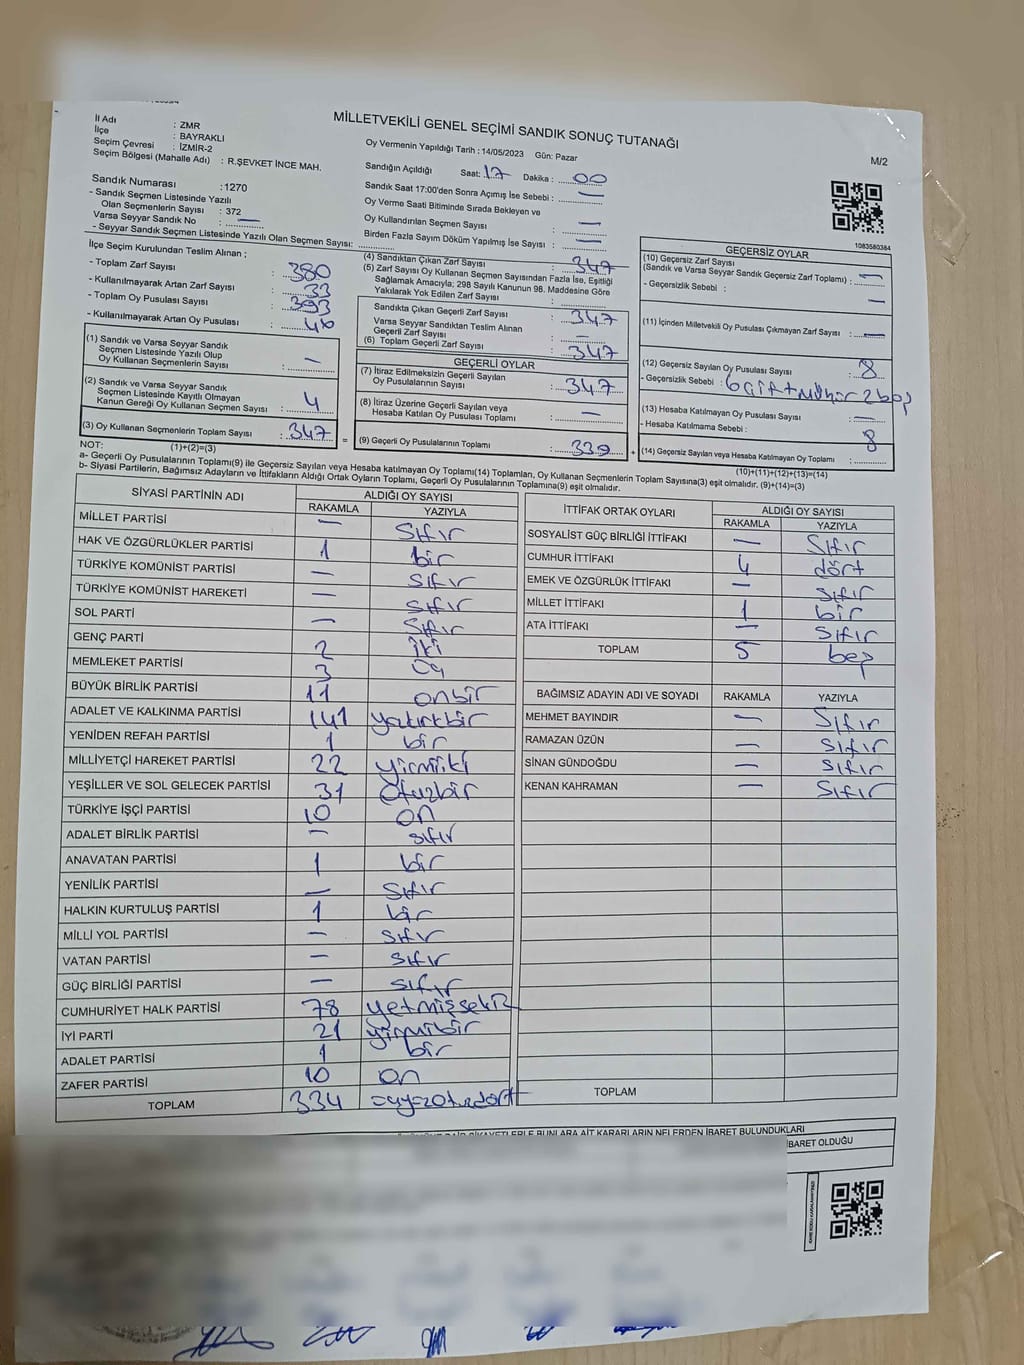 MİLLETVEKİLİ GENEL SEÇİMİ SANDIK SONUÇ TUTANAĞI
M/2
İl Adı : ZMR
İlçe : BAYRAKLI
Seçim Çevresi : İZMİR-2
Seçim Bölgesi (Mahalle Adı) : R.ŞEVKET İNCE MAH.
Sandık Numarası : 1270
- Sandık Seçmen Listesinde Yazılı
Olan Seçmenlerin Sayısı : 372
Varsa Seyyar Sandık No : —
- Seyyar Sandık Seçmen Listesinde Yazılı Olan Seçmen Sayısı:
Oy Vermenin Yapıldığı Tarih : 14/05/2023 Gün: Pazar
Sandığın Açıldığı Saat: 17 Dakika : 00
Sandık Saat 17:00'den Sonra Açımış İse Sebebi : —
Oy Verme Saati Bitiminde Sırada Bekleyen ve
Oy Kullandırılan Seçmen Sayısı : —
Birden Fazla Sayım Döküm Yapılmış İse Sayısı : —
1083580384
İlçe Seçim Kurulundan Teslim Alınan ;
- Toplam Zarf Sayısı : 380
- Kullanılmayarak Artan Zarf Sayısı : 33
- Toplam Oy Pusulası Sayısı : 393
- Kullanılmayarak Artan Oy Pusulası : 46
(1) Sandık ve Varsa Seyyar Sandık
Seçmen Listesinde Yazılı Olup
Oy Kullanan Seçmenlerin Sayısı : —
(2) Sandık ve Varsa Seyyar Sandık
Seçmen Listesinde Kayıtlı Olmayan
Kanun Gereği Oy Kullanan Seçmen Sayısı : 4
(3) Oy Kullanan Seçmenlerin Toplam Sayısı : 347
(1)+(2)=(3)
(4) Sandıktan Çıkan Zarf Sayısı : 347
(5) Zarf Sayısı Oy Kullanan Seçmen Sayısından Fazla İse, Eşitliği
Sağlamak Amacıyla; 298 Sayılı Kanunun 98. Maddesine Göre
Yakılarak Yok Edilen Zarf Sayısı :
Sandıkta Çıkan Geçerli Zarf Sayısı : 347
Varsa Seyyar Sandıktan Teslim Alınan
Geçerli Zarf Sayısı : —
(6) Toplam Geçerli Zarf Sayısı : 347
GEÇERLİ OYLAR
(7) İtiraz Edilmeksizin Geçerli Sayılan
Oy Pusulalarının Sayısı : 347
(8) İtiraz Üzerine Geçerli Sayılan veya
Hesaba Katılan Oy Pusulası Toplamı : —
= (9) Geçerli Oy Pusulalarının Toplamı : 339 +
GEÇERSİZ OYLAR
(10) Geçersiz Zarf Sayısı
(Sandık ve Varsa Seyyar Sandık Geçersiz Zarf Toplamı) : —
- Geçersizlik Sebebi : —
(11) İçinden Milletvekili Oy Pusulası Çıkmayan Zarf Sayısı : —
(12) Geçersiz Sayılan Oy Pusulası Sayısı : 8
- Geçersizlik Sebebi : 6 çift mühür 2 boş
(13) Hesaba Katılmayan Oy Pusulası Sayısı : —
- Hesaba Katılmama Sebebi :
(14) Geçersiz Sayılan veya Hesaba Katılmayan Oy Toplamı : 8
(10)+(11)+(12)+(13)=(14)
NOT:
a- Geçerli Oy Pusulalarının Toplamı(9) ile Geçersiz Sayılan veya Hesaba katılmayan Oy Toplamı(14) Toplamları, Oy Kullanan Seçmenlerin Toplam Sayısına(3) eşit olmalıdır. (9)+(14)=(3)
b- Siyasi Partilerin, Bağımsız Adayların ve İttifakların Aldığı Ortak Oyların Toplamı, Geçerli Oy Pusulalarının Toplamına(9) eşit olmalıdır.
SİYASİ PARTİNİN ADI ALDIĞI OY SAYISI
RAKAMLA YAZIYLA
MİLLET PARTİSİ — sıfır
HAK VE ÖZGÜRLÜKLER PARTİSİ 1 bir
TÜRKİYE KOMÜNİST PARTİSİ — sıfır
TÜRKİYE KOMÜNİST HAREKETİ — sıfır
SOL PARTİ — sıfır
GENÇ PARTİ 2 iki
MEMLEKET PARTİSİ 3 üç
BÜYÜK BİRLİK PARTİSİ 11 onbir
ADALET VE KALKINMA PARTİSİ 141 yüzkırkbir
YENİDEN REFAH PARTİSİ 1 bir
MİLLİYETÇİ HAREKET PARTİSİ 22 yirmiiki
YEŞİLLER VE SOL GELECEK PARTİSİ 31 otuzbir
TÜRKİYE İŞÇİ PARTİSİ 10 on
ADALET BİRLİK PARTİSİ — sıfır
ANAVATAN PARTİSİ 1 bir
YENİLİK PARTİSİ — sıfır
HALKIN KURTULUŞ PARTİSİ 1 bir
MİLLİ YOL PARTİSİ — sıfır
VATAN PARTİSİ — sıfır
GÜÇ BİRLİĞİ PARTİSİ — sıfır
CUMHURİYET HALK PARTİSİ 78 yetmişsekiz
İYİ PARTİ 21 yirmibir
ADALET PARTİSİ 1 bir
ZAFER PARTİSİ 10 on
TOPLAM 334 üçyüzotuzdört
İTTİFAK ORTAK OYLARI ALDIĞI OY SAYISI
RAKAMLA YAZIYLA
SOSYALİST GÜÇ BİRLİĞİ İTTİFAKI — sıfır
CUMHUR İTTİFAKI 4 dört
EMEK VE ÖZGÜRLÜK İTTİFAKI — sıfır
MİLLET İTTİFAKI 1 bir
ATA İTTİFAKI — sıfır
TOPLAM 5 beş
BAĞIMSIZ ADAYIN ADI VE SOYADI RAKAMLA YAZIYLA
MEHMET BAYINDIR — sıfır
RAMAZAN ÜZÜN — sıfır
SİNAN GÜNDOĞDU — sıfır
KENAN KAHRAMAN — sıfır
TOPLAM
BUNLARA AİT KARARLARIN NELERDEN İBARET BULUNDUKLARI
İBARET OLDUĞU